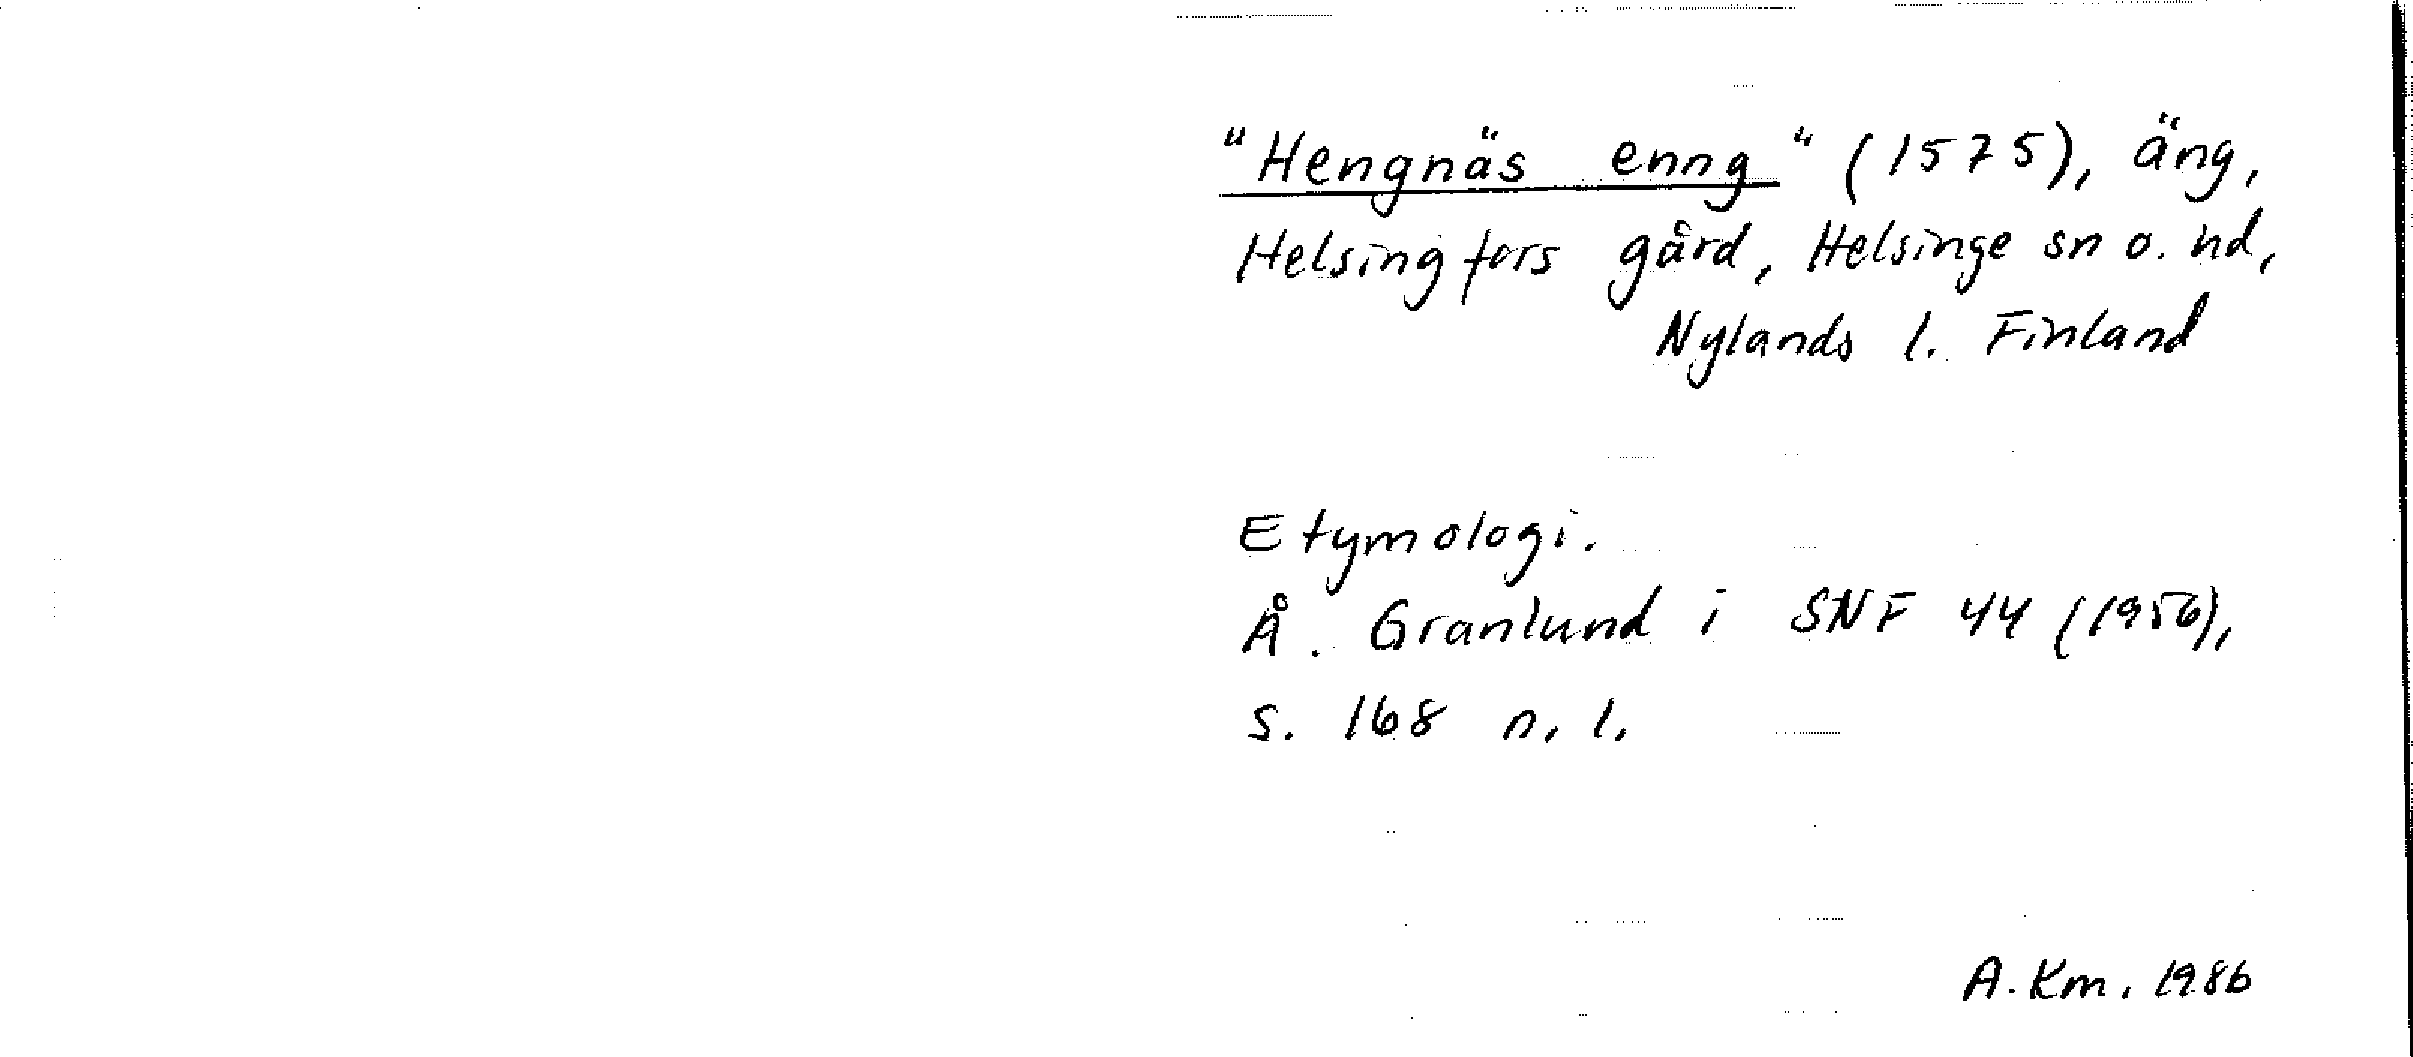 "Hengnäs enng" (1575), äng,
Helsingfors gård, Helsinge sn o. hd,
Nylands l. Finland
Etymologi.
Å. Granlund i SNF 44 (1956),
s. 168 n. l.
A. Km. 1986